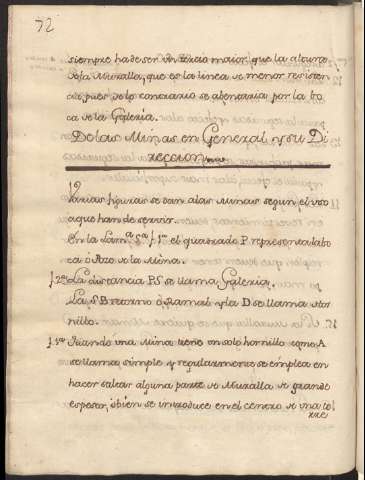 72
siempre ha de ser un tercio maior que la altura
de la Muralla, que es la linea de menor resisten
cia pues de lo contrario se abentaria por la bo
ca de la Galeria.
De las Minas en General y su Di
reccion
12
Varias figuras se dan alas Minas segun el uso
aque han de servir.
En la Lam.ª 9.ª f. 1.ª el quadrado P. representa la bo
ca ó Pozo de la Mina.
f. 2.ª La distancia P.S se llama Galeria.
La S B retorno ó Ramal y la D se llama Hor
nillo.
f. 1.ª Quando una Mina tiene un solo hornillo como A
se llama simple y regularmente se emplea en
hacer saltar alguna parte de Muralla de grande
espesor, óbien se introduce en el centro de una to
rre